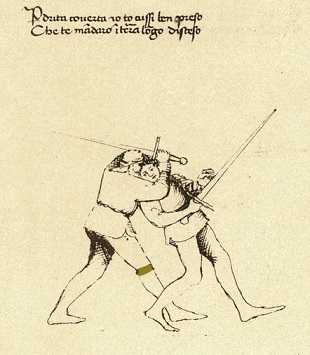 P drita coverta io to cussi ben preso
Che te mãdarò ĩ terã logo disteso